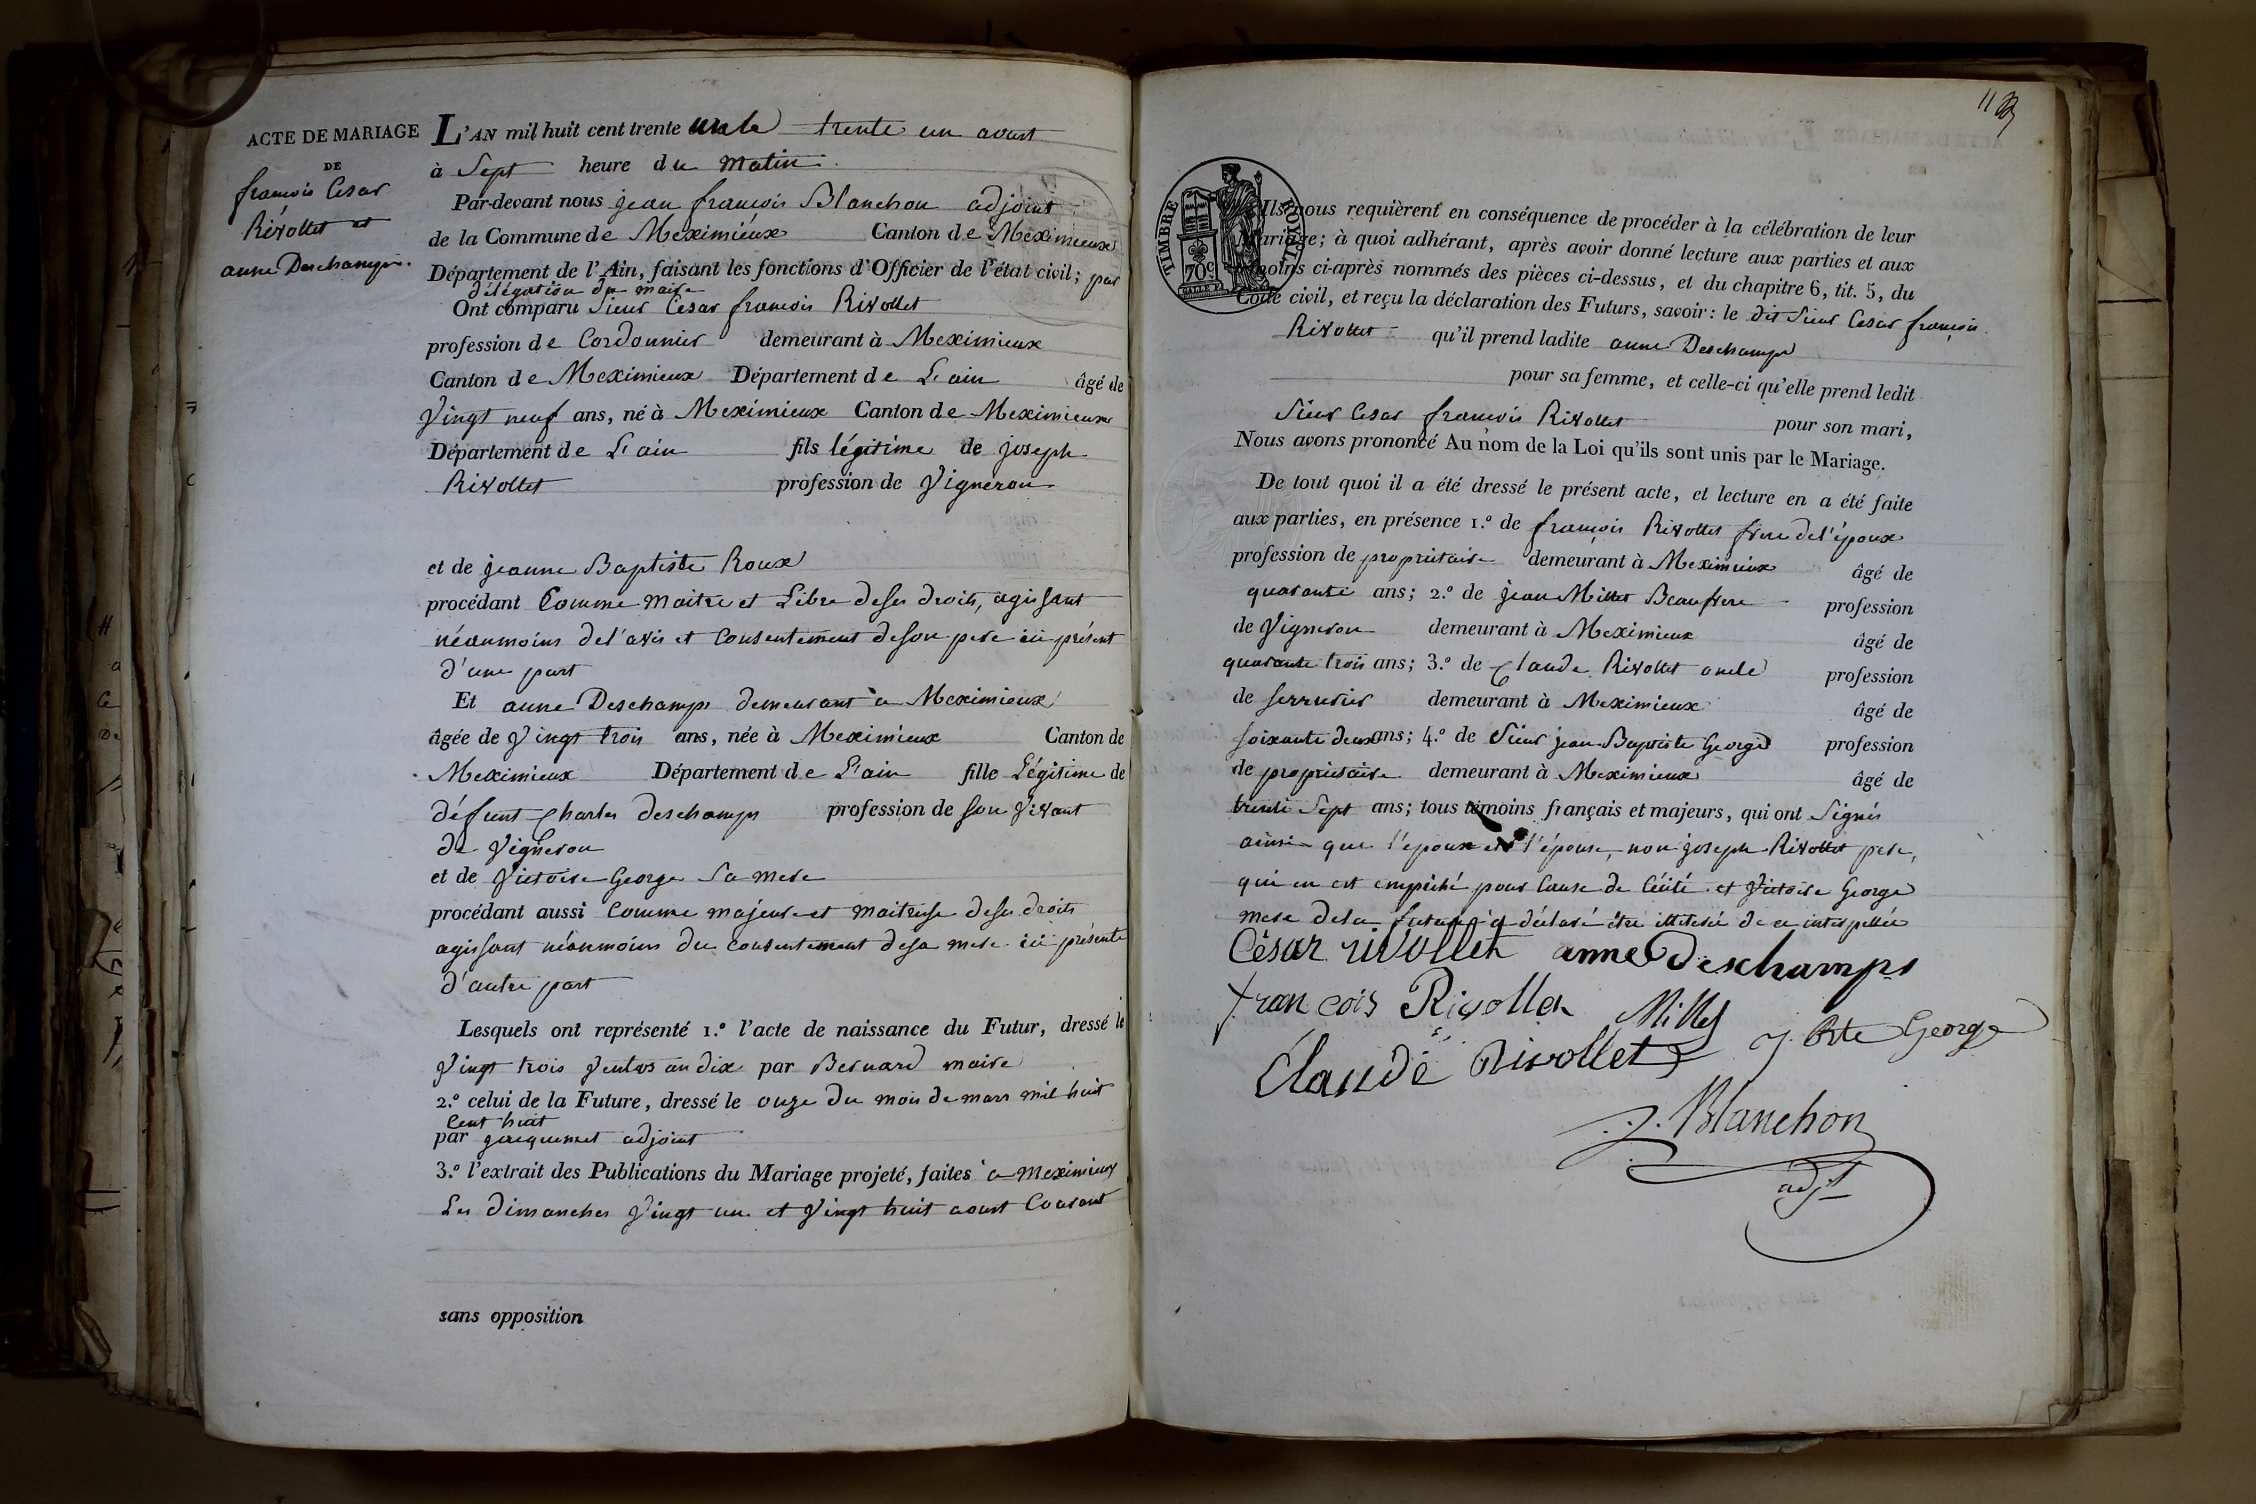 ACTE DE MARIAGE
DE
françois Cesar
Rivollet et
anne Deschamps.
L'AN mil huit cent trente un le trente un aoust
à Sept heure du matin
Par-devant nous jean françois Blanchon adjoint
de la Commune de Meximieux Canton de Meximieux
Département de l'Ain, faisant les fonctions d'Officier de l'état civil; par
délégation du maire
Ont comparu Sieur Cesar françois Rivollet
profession de Cordonnier demeurant à Meximieux
Canton de Meximieux Département de L'ain âgé de
Vingt neuf ans, né à Meximieux Canton de Meximieux
Département de L'ain fils légitime de joseph
Rivollet profession de Vigneron
et de jeanne Baptiste Roux
procédant Comme maitre et Libre de ses droits, agissant
néanmoins de l'avis et Consentement de son pere ici présent
d'une part
Et anne Deschamps demeurant à Meximieux
âgée de Vingt trois ans, née à Meximieux Canton de
Meximieux Département de L'ain fille Légitime de
défunt Charles deschamps profession de son Vivant
de Vigneron
et de Victoire George Sa mere
procédant aussi Comme majeure et maitresse de ses droits
agissant néanmoins du consentement de sa mere ici présente
d'autre part
Lesquels ont représenté 1.º l'acte de naissance du Futur, dressé le
Vingt trois Ventos an dix par Bernard maire
2.º celui de la Future, dressé le onze du mois de mars mil huit
Cent huit
par jacquemet adjoint
3.º l'extrait des Publications du Mariage projeté, faites à meximieux
Les dimanches Vingt un et Vingt huit aoust Courant
sans opposition
113
TIMBRE ROYAL
70c
Ils nous requièrent en conséquence de procéder à la célébration de leur
Mariage; à quoi adhérant, après avoir donné lecture aux parties et aux
témoins ci-après nommés des pièces ci-dessus, et du chapitre 6, tit. 5, du
Code civil, et reçu la déclaration des Futurs, savoir: le dit Sieur Cesar françois
Rivollet qu'il prend ladite anne Deschamps
pour sa femme, et celle-ci qu'elle prend ledit
Sieur Cesar françois Rivollet pour son mari,
Nous avons prononcé Au nom de la Loi qu'ils sont unis par le Mariage.
De tout quoi il a été dressé le présent acte, et lecture en a été faite
aux parties, en présence 1.º de françois Rivollet frere de l'époux
profession de propriétaire demeurant à Meximieux âgé de
quarante ans; 2.º de jean Millet Beaufrere profession
de Vigneron demeurant à Meximieux âgé de
quarante trois ans; 3.º de Claude Rivollet oncle profession
de serrurier demeurant à Meximieux âgé de
soixante deux ans; 4.º de Sieur jean Baptiste George profession
de propriétaire demeurant à Meximieux âgé de
trente Sept ans; tous témoins français et majeurs, qui ont Signés
ainsi que l'époux et l'épouse, non joseph Rivollet pere,
qui en est empêché pour Cause de Cécité et Victoire George
mere de la future a déclaré être illeterée de ce interpellée
César rivollet anne Deschamps
francois Rivollet Millet
Claude Rivollet J. Bte George
J. Blanchon
adjt